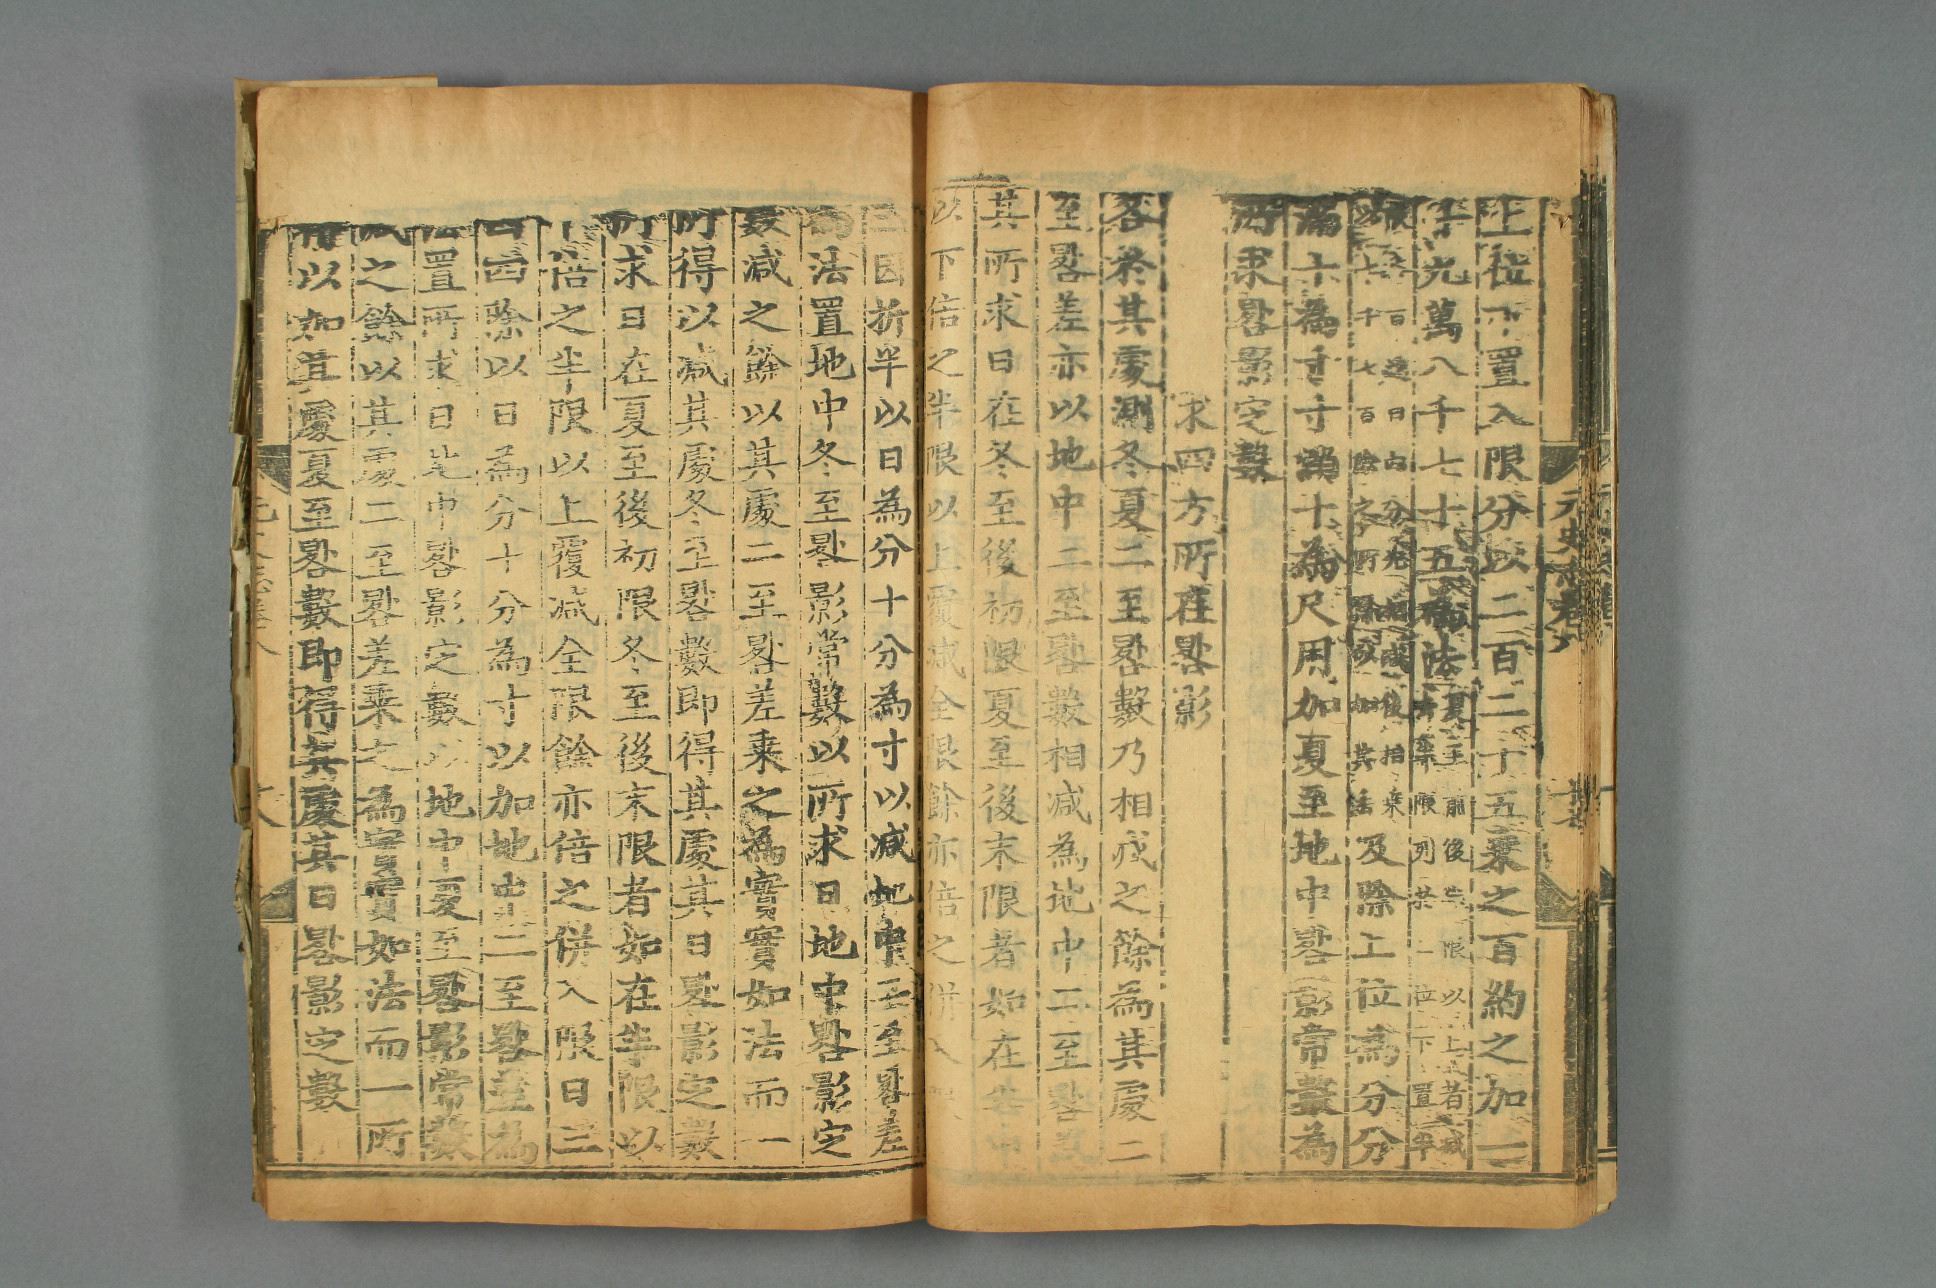 上位下置入限分以二百二十五乘之百約之加一
十九萬八千七十五為法夏至前後半限以上者減
半限列於上位下置半
限各百通日內分先相減後相乘
以七千七百除之所得以加其法及除上位為分分
滿十為寸寸滿十為尺用加夏至地中晷影常數為
所求晷影定數
求四方所在晷影
各於其處測冬夏二至晷數乃相減之餘為其處二
至晷差亦以地中二至晷數相減為地中二至晷差
其所求日在冬至後初限夏至後末限者如在半限
以下倍之半限以上覆減全限餘亦倍之併入限
三因折半以日為分十分為寸以減地中二至晷差
為法置地中冬至晷影常數以所求日地中晷影定
數減之餘以其處二至晷差乘之為實實如法而一
所得以減其處冬至晷數即得其處其日晷影定數
所求日在夏至後初限冬至後末限者如在半限以
下倍之半限以上覆減全限餘亦倍之併入限日三
因四除以日為分十分為寸以加地中二至晷差為
法置所求日地中晷影定數以地中夏至晷影常數
減之餘以其處二至晷差乘之為實實如法而一所
得以加其處夏至晷數即得其處其日晷影定數